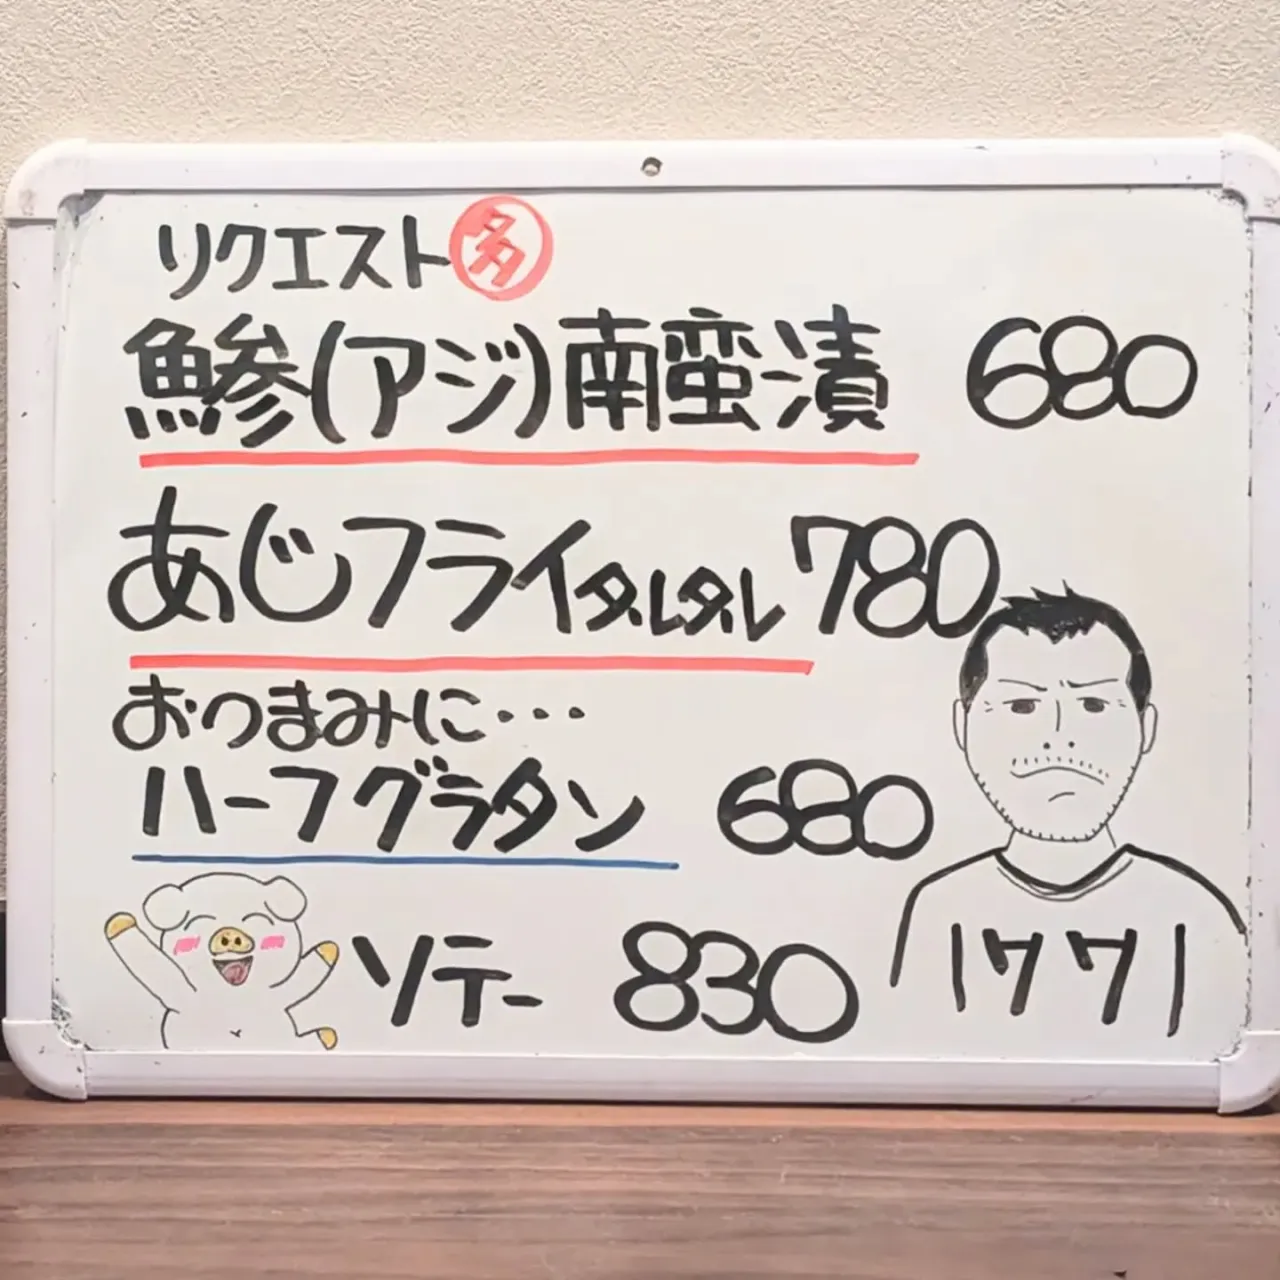 リクエスト多
鯵(アジ)南蛮漬 680
あじフライタルタル 780
おつまみに・・・
ハーフグラタン 680
ソテー 830
1771